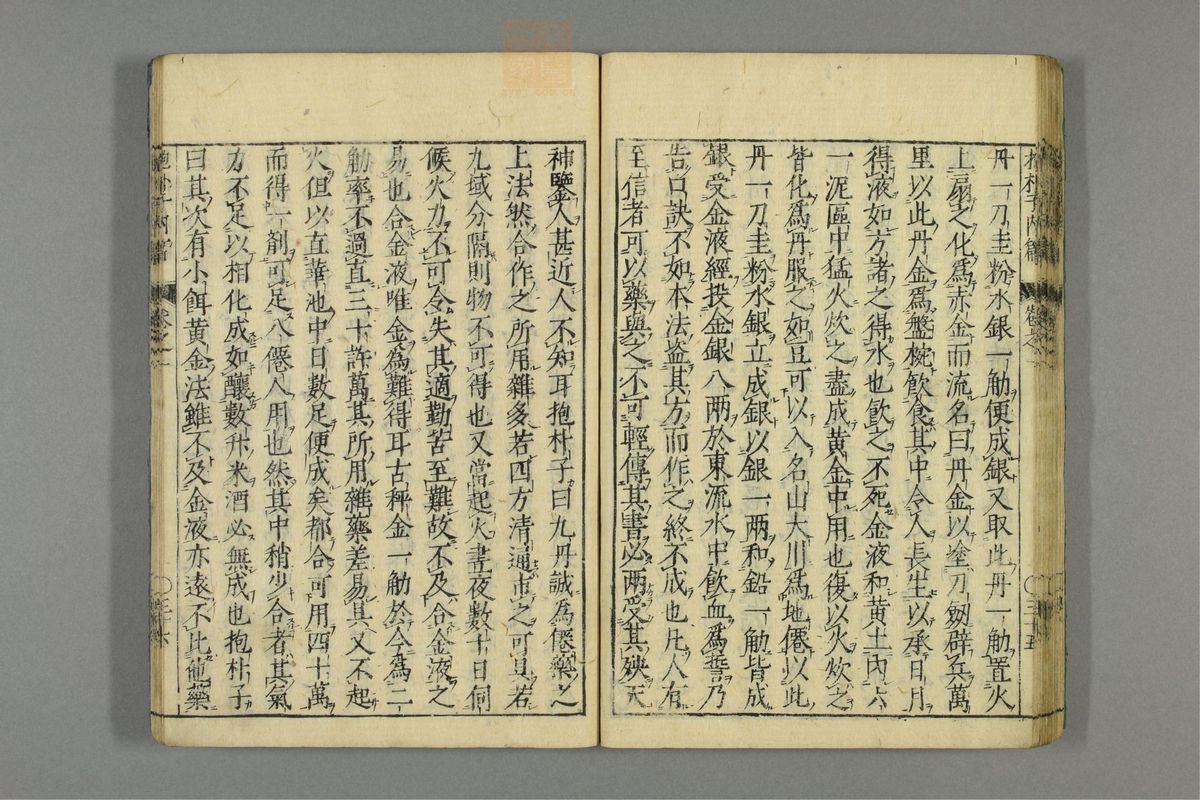 丹一刀圭粉水銀一觔便成銀又取此丹一觔置火
上扇之化爲赤金而流名曰丹金以塗刀劔辟兵萬
里以此丹金爲盤椀飲食其中令人長生以承日月
得液如方諸之得水也飲之不死金液和黃土內六
一泥甌中猛火炊之盡成黃金中用也復以火炊之
皆化爲丹服之如豆可以入名山大川爲地僊以此
丹一刀圭粉水銀立成銀以銀一兩和鉛一觔皆成
銀受金液經投金銀八兩於東流水中飲血爲誓乃
告口訣不如本法盜其方而作之終不成也凡人有
至信者可以藥與之不可輕傳其書必兩受其殃天
神鑒人甚近人不知耳抱朴子曰九丹誠為僊藥之
上法然合作之所用雜多若四方清通市之可具若
九域分隔則物不可得也又當起火晝夜數十日伺
候火力不可令失其適勤苦至難故不及合金液之
易也合金液唯金為難得耳古秤金一觔於今為二
觔率不過直三十許萬其所用雜藥差易具又不起
火但以直華池中日數足便成矣都合可用四十萬
而得一劑可足八僊人用也然其中稍少合者其氣
力不足以相化成如釀數升米酒必無成也抱朴子
曰其次有小餌黃金法雖不及金液亦遠不比他藥